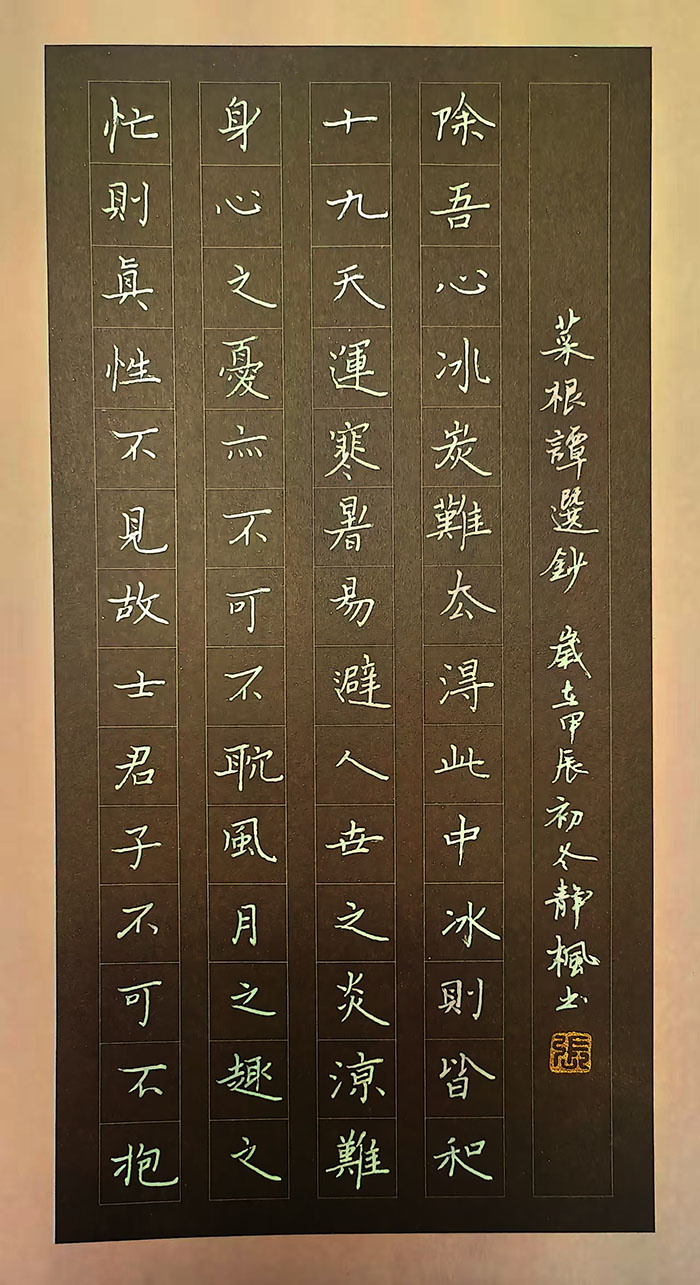 忙則眞性不見故士君子不可不抱
身心之憂亦不可不耽風月之趣之
十九天運寒暑易避人世之炎涼難
除吾心冰炭難去得此中冰則皆和
菜根譚選鈔 歲在甲辰初冬靜楓書
張